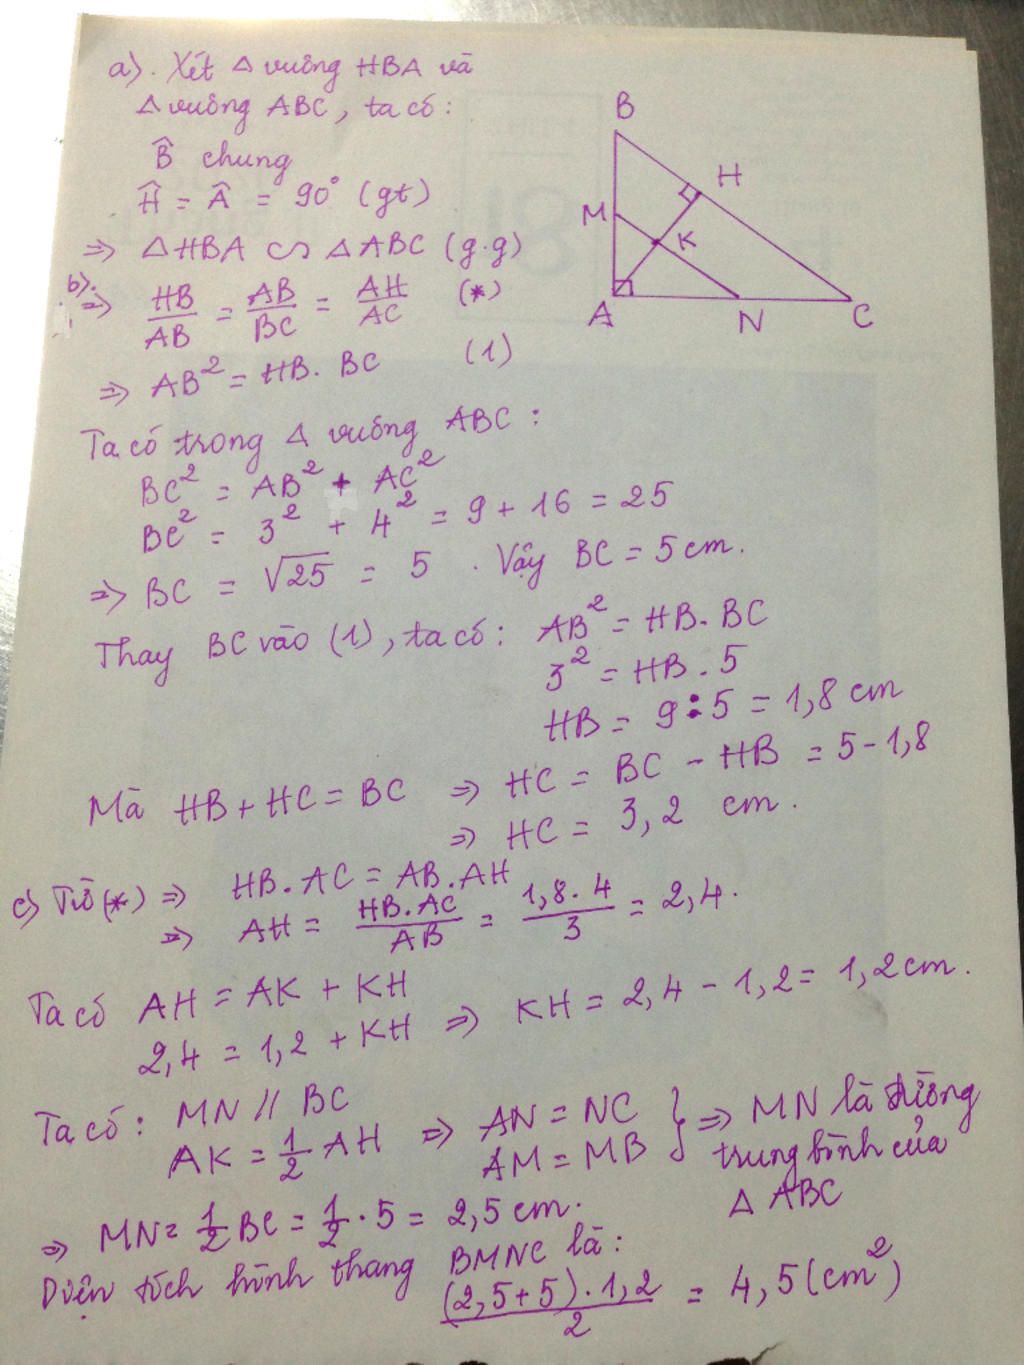 a). Xét Δ vuông HBA và
Δ vuông ABC, ta có:
B̂ chung
Ĥ = Â = 90° (gt)
⇒ ΔHBA ∽ ΔABC (g.g)
b). ⇒ HB/AB = AB/BC = AH/AC (*)
⇒ AB² = HB. BC (1)
Ta có trong Δ vuông ABC:
BC² = AB² + AC²
BC² = 3² + 4² = 9 + 16 = 25
⇒ BC = √25 = 5 . Vậy BC = 5 cm.
Thay BC vào (1), ta có: AB² = HB. BC
3² = HB . 5
HB = 9 : 5 = 1,8 cm
Mà HB + HC = BC ⇒ HC = BC - HB = 5 - 1,8
⇒ HC = 3,2 cm.
c) Từ (*) ⇒ HB. AC = AB. AH
⇒ AH = HB.AC/AB = 1,8 . 4/3 = 2,4.
Ta có AH = AK + KH
2,4 = 1,2 + KH ⇒ KH = 2,4 - 1,2 = 1,2 cm.
Ta có: MN // BC
AK = 1/2 AH ⇒ AN = NC
AM = MB } ⇒ MN là đường
trung bình của
Δ ABC
⇒ MN = 1/2 BC = 1/2 . 5 = 2,5 cm.
Diện tích hình thang BMNC là:
(2,5 + 5) . 1,2/2 = 4,5 (cm²)
B
H
M
K
A
N
C